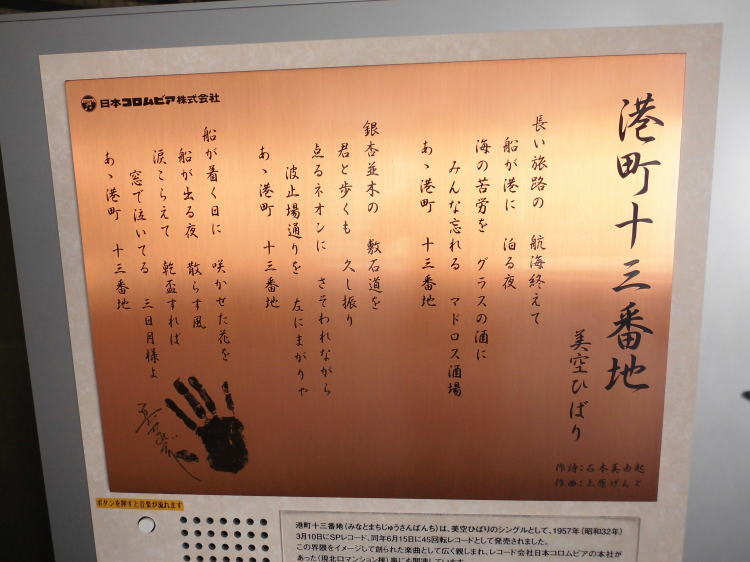 日本コロムビア株式会社
港町十三番地
美空ひばり
長い旅路の 航海終えて
船が港に 泊る夜
海の苦労を グラスの酒に
みんな忘れる マドロス酒場
あゝ港町 十三番地
銀杏並木の 敷石道を
君と歩くも 久し振り
点るネオンに さそわれながら
波止場通りを 左にまがりゃ
あゝ港町 十三番地
船が着く日に 咲かせた花を
船が出る夜 散らす風
涙こらえて 乾盃すれば
窓で泣いてる 三日月様よ
あゝ港町 十三番地
作詩:石本美由起
作曲:上原げんと
ボタンを押すと音楽が流れます
港町十三番地(みなとまちじゅうさんばんち)は、美空ひばりのシングルとして、1957年(昭和32年)
3月10日にSPレコード、同年6月15日に45回転レコードとして発売されました。
この界隈をイメージして創られた楽曲として広く親しまれ、レコード会社日本コロムビアの本社が
あった(現北口マンション棟)事にも関連しています